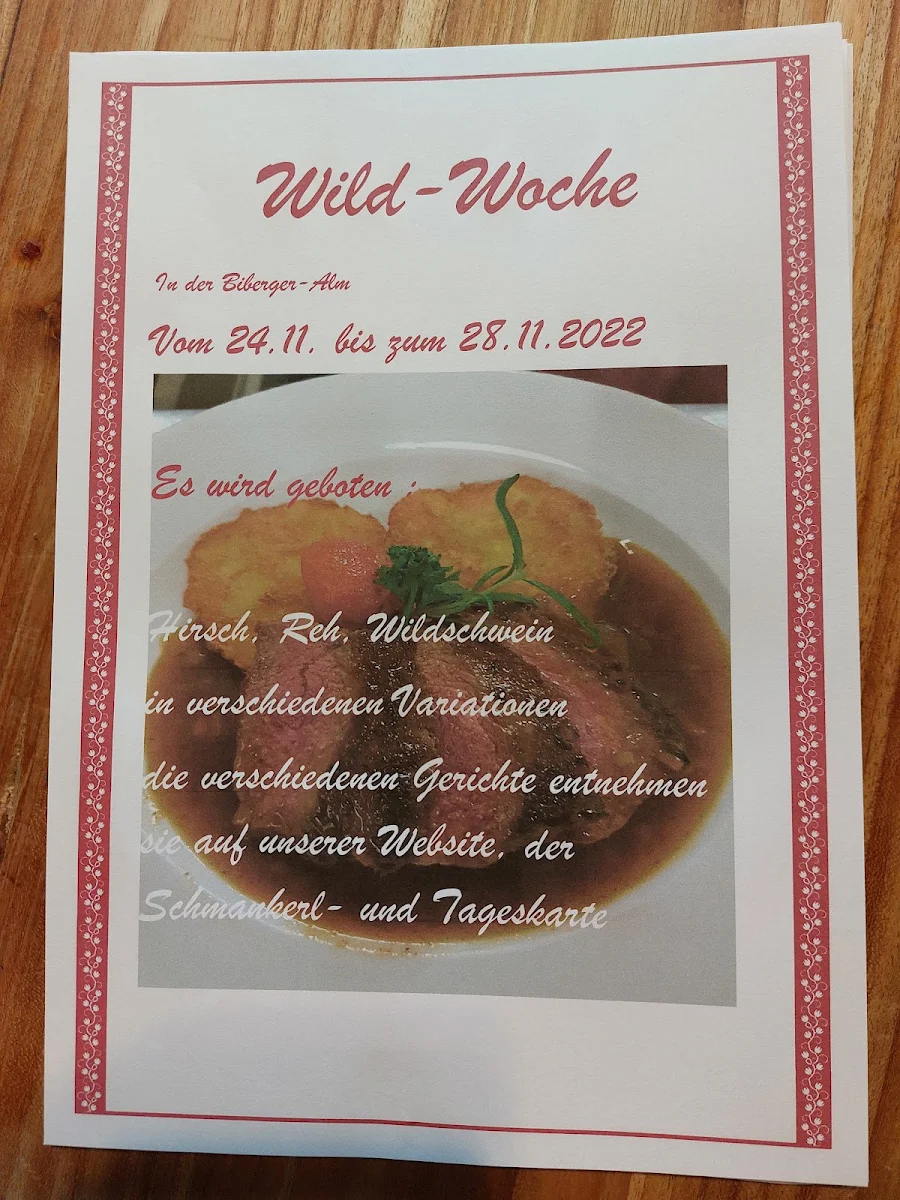 Wild-Woche
In der Biberger-Alm
Vom 24.11. bis zum 28.11.2022
Es wird geboten :
Hirsch, Reh, Wildschwein
in verschiedenen Variationen
die verschiedenen Gerichte entnehmen
sie auf unserer Website, der
Schmankerl- und Tageskarte